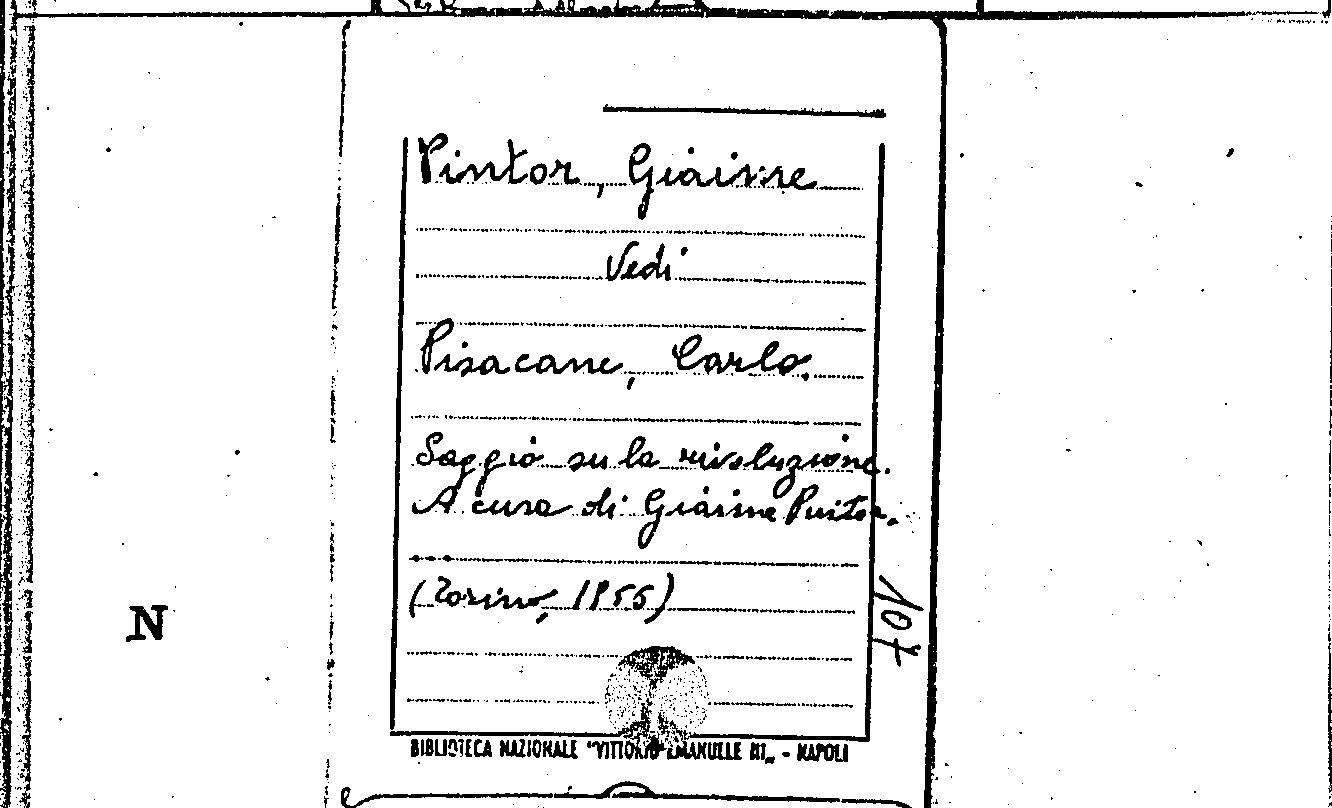 Pintor, Giaime
Vedi
Pisacane, Carlo.
Saggio su la rivoluzione.
A cura di Giaime Pintor.
(Torino, 1955)
107
N
BIBLIOTECA NAZIONALE "VITTORIO EMANUELE III„ - NAPOLI